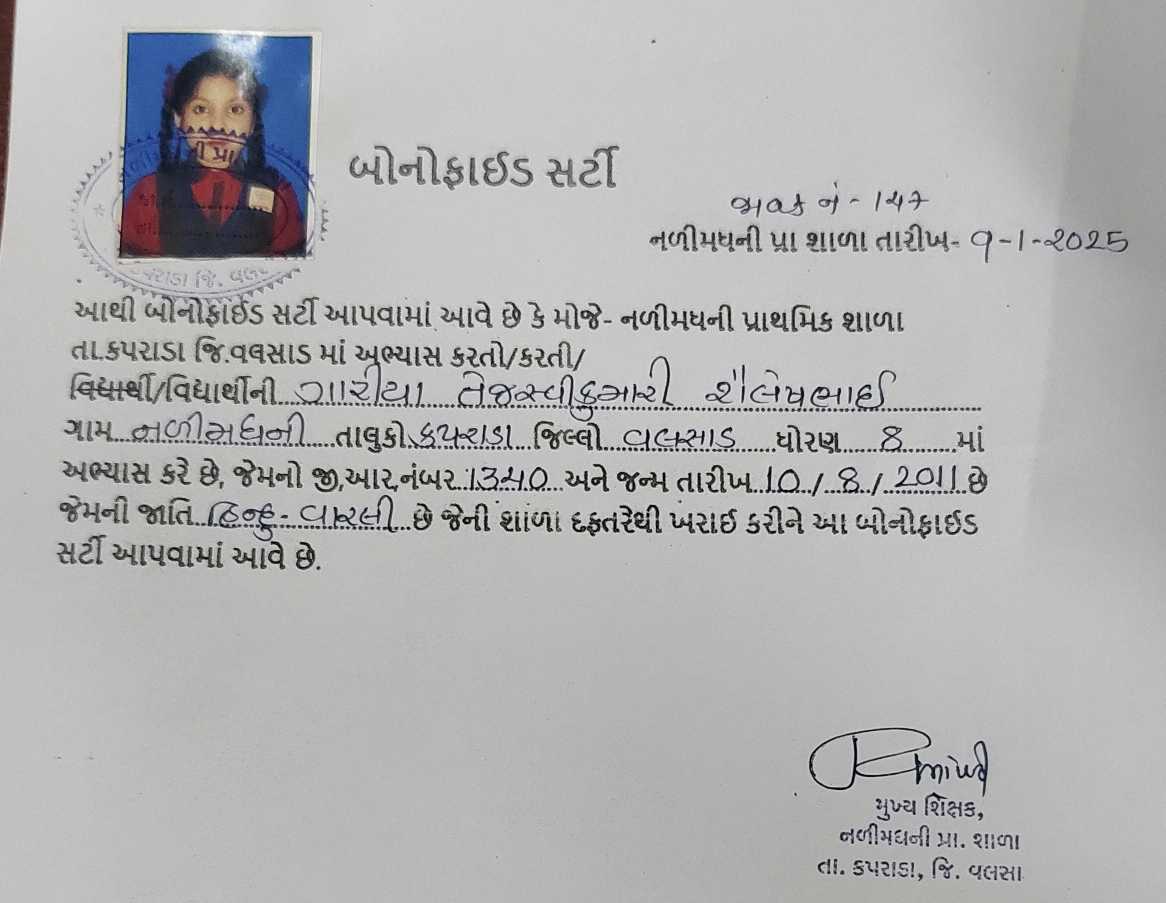 બોનોફાઈડ સર્ટી
જાવક નં - 147
નળીમધની પ્રા શાળા તારીખ- 9-1-2025
આથી બોનોફાઈડ સર્ટી આપવામાં આવે છે કે મોજે- નળીમધની પ્રાથમિક શાળા
તા.કપરાડા જિ.વલસાડ માં અભ્યાસ કરતો/કરતી/
વિદ્યાર્થી/વિદ્યાર્થીની ગારીયા તેજસ્વીકુમારી શૈલેષભાઈ
ગામ નળીમધની તાલુકો કપરાડા જિલ્લો વલસાડ ધોરણ 8 માં
અભ્યાસ કરે છે, જેમનો જી,આર,નંબર 1340 અને જન્મ તારીખ 10 / 8 / 2011 છે
જેમની જાતિ હિન્દુ - વારલી છે જેની શાળા દફતરેથી ખરાઈ કરીને આ બોનોફાઈડ
સર્ટી આપવામાં આવે છે.
મુખ્ય શિક્ષક,
નળીમધની પ્રા. શાળા
તા. કપરાડા, જિ. વલસા